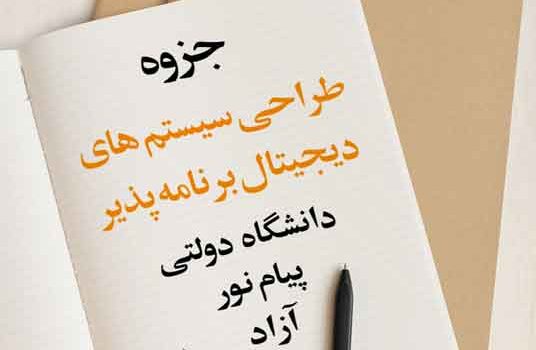 جزوه
طراحی سیستم های
دیجیتال برنامه پذیر
دانشگاه دولتی
پیام نور
آزاد